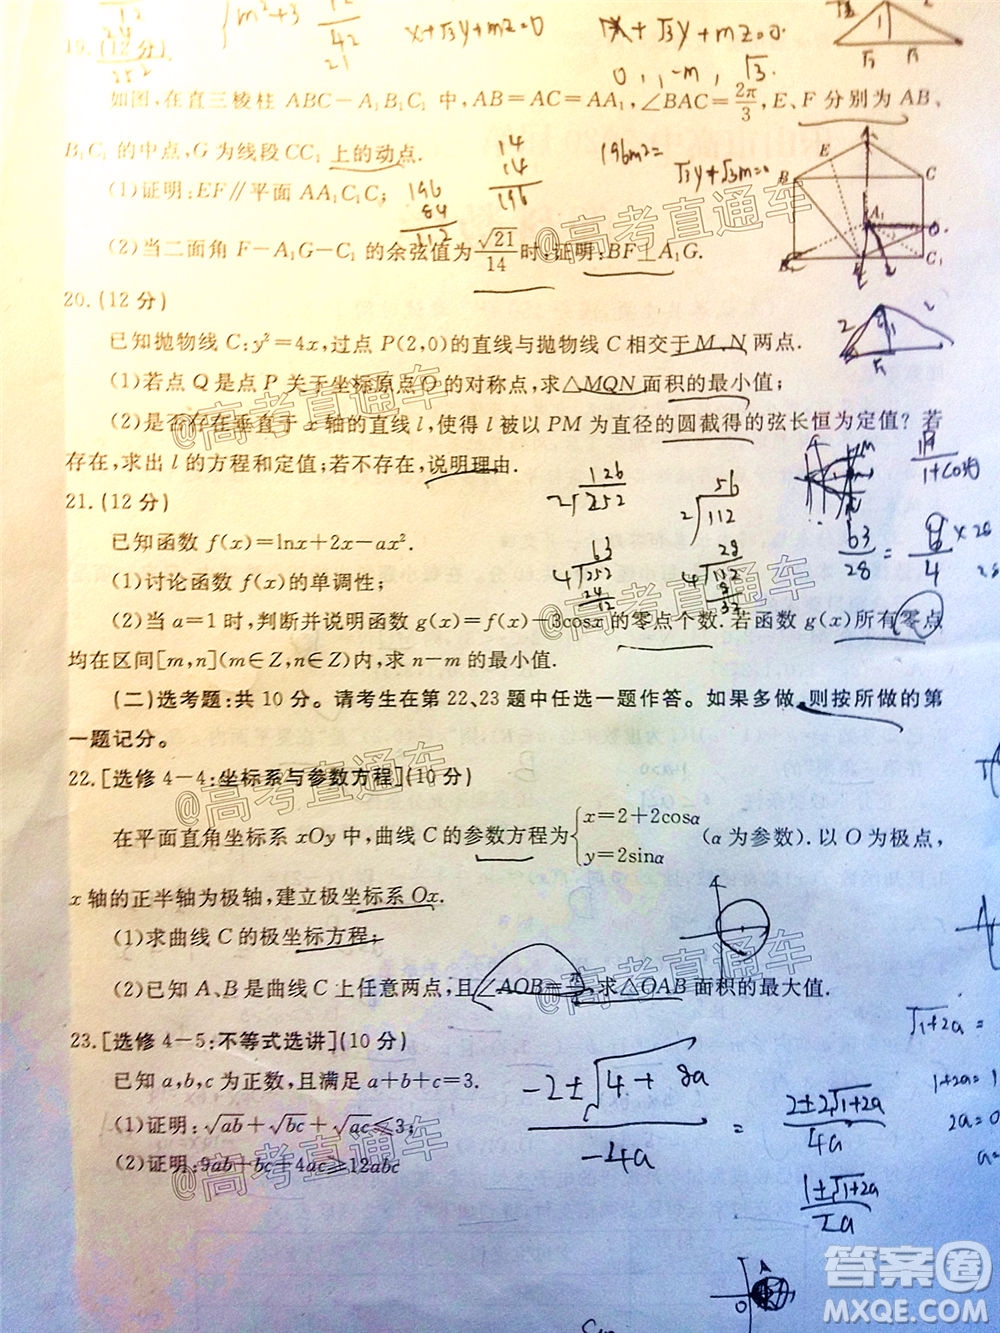 19.(12分)
如图,在直三棱柱ABC-A₁B₁C₁中,AB=AC=AA₁,∠BAC=2π/3,E、F分别为AB、
B₁C₁的中点,G为线段CC₁上的动点.
(1)证明:EF∥平面AA₁C₁C;
(2)当二面角F-A₁G-C₁的余弦值为√21/14时,证明:BF⊥A₁G.
20.(12分)
已知抛物线C:y²=4x,过点P(2,0)的直线与抛物线C相交于M、N两点.
(1)若点Q是点P关于坐标原点O的对称点,求△MQN面积的最小值;
(2)是否存在垂直于x轴的直线l,使得l被以PM为直径的圆截得的弦长恒为定值?若
存在,求出l的方程和定值;若不存在,说明理由.
21.(12分)
已知函数f(x)=lnx+2x-ax².
(1)讨论函数f(x)的单调性;
(2)当a=1时,判断并说明函数g(x)=f(x)-3cosx的零点个数.若函数g(x)所有零点
均在区间[m,n](m∈Z,n∈Z)内,求n-m的最小值.
(二)选考题:共10分。请考生在第22、23题中任选一题作答。如果多做,则按所做的第
一题记分。
22.[选修4-4:坐标系与参数方程](10分)
在平面直角坐标系xOy中,曲线C的参数方程为{x=2+2cosα y=2sinα(α为参数).以O为极点,
x轴的正半轴为极轴,建立极坐标系Ox.
(1)求曲线C的极坐标方程;
(2)已知A、B是曲线C上任意两点,且∠AOB=π/,求△OAB面积的最大值.
23.[选修4-5:不等式选讲](10分)
已知a,b,c为正数,且满足a+b+c=3.
(1)证明:√ab+√bc+√ac≤3;
(2)证明:9ab+bc+4ac≥12abc
x+√3y+mz=0
0,-m,√3
14
14
196
196m²=
√3y+√3m=0
196
84
112
126
2√252
56
2√112
63
4√252
24
12
28
4√112
8
32
63/28=9/4
1+cosθ
-2±√4+8a
-4a
=
2±2√1+2a
4a
1±√1+2a
2a
√1+2a=
1+2a=1
2a=0
a=
@高考直通车
@高考直通车
@高考直通车
@高考直通车
@高考直通车
@高考直通车
@高考直通车
答案圈
MXQE.COM